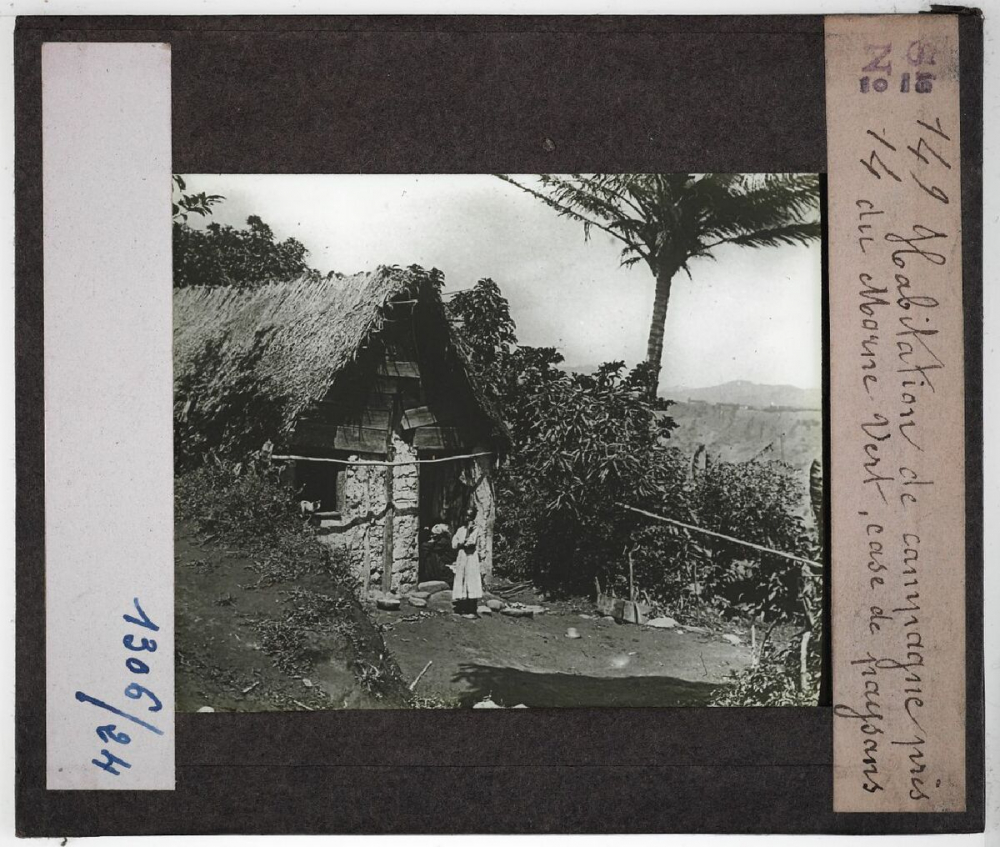 1306/24
149 Habitation de campagne près
14 du Morne Vert, case de paysans